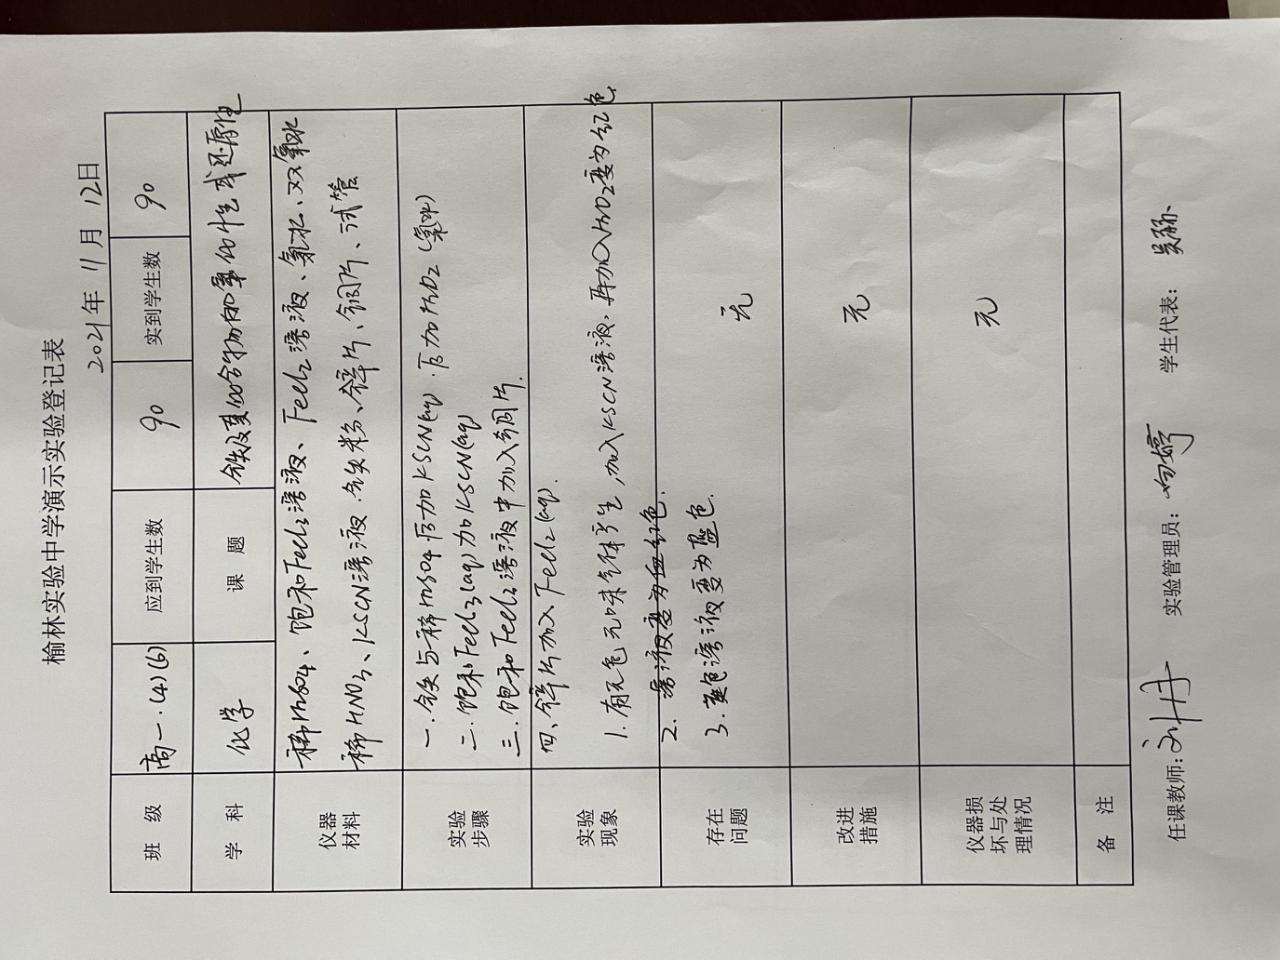 榆林实验中学演示实验登记表
2021年 11月 12日
班 级 高一.(4)(6) 应到学生数 90 实到学生数 90
学 科 化学 课 题 铁及其化合物的氧化性或还原性
仪器材料 稀H2SO4、饱和FeCl3溶液、FeCl2溶液、氯水、双氧水
稀HNO3、KSCN溶液、铁粉、锌片、铜片、试管
实验步骤 一.铁与稀H2SO4后加KSCN(aq).后加H2O2(氯水)
二.饱和FeCl3(aq)加KSCN(aq)
三.饱和FeCl3溶液中加入铜片.
四、锌片加入FeCl2(aq).
实验现象 1.有无色无味气体产生,加入KSCN溶液,再加入H2O2变为红色
2.溶液变为血红色.
3.黄色溶液变为蓝色.
存在问题 无
改进措施 无
仪器损坏与处理情况 无
备 注
任课教师: 实验管理员: 向婷 学生代表: